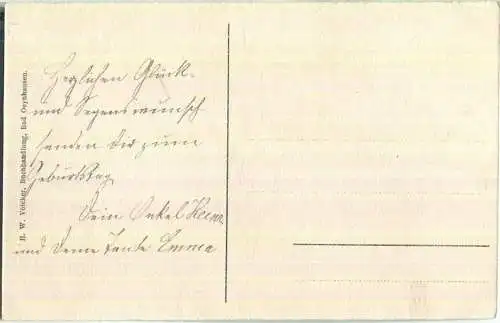 Herzlichen Glück-
und Segenswunsch
senden dir zum
Geburtstag
Dein Onkel
und Deine Tante Emma
H. W. Völcker, Buchhandlung, Bad Oeynhausen.